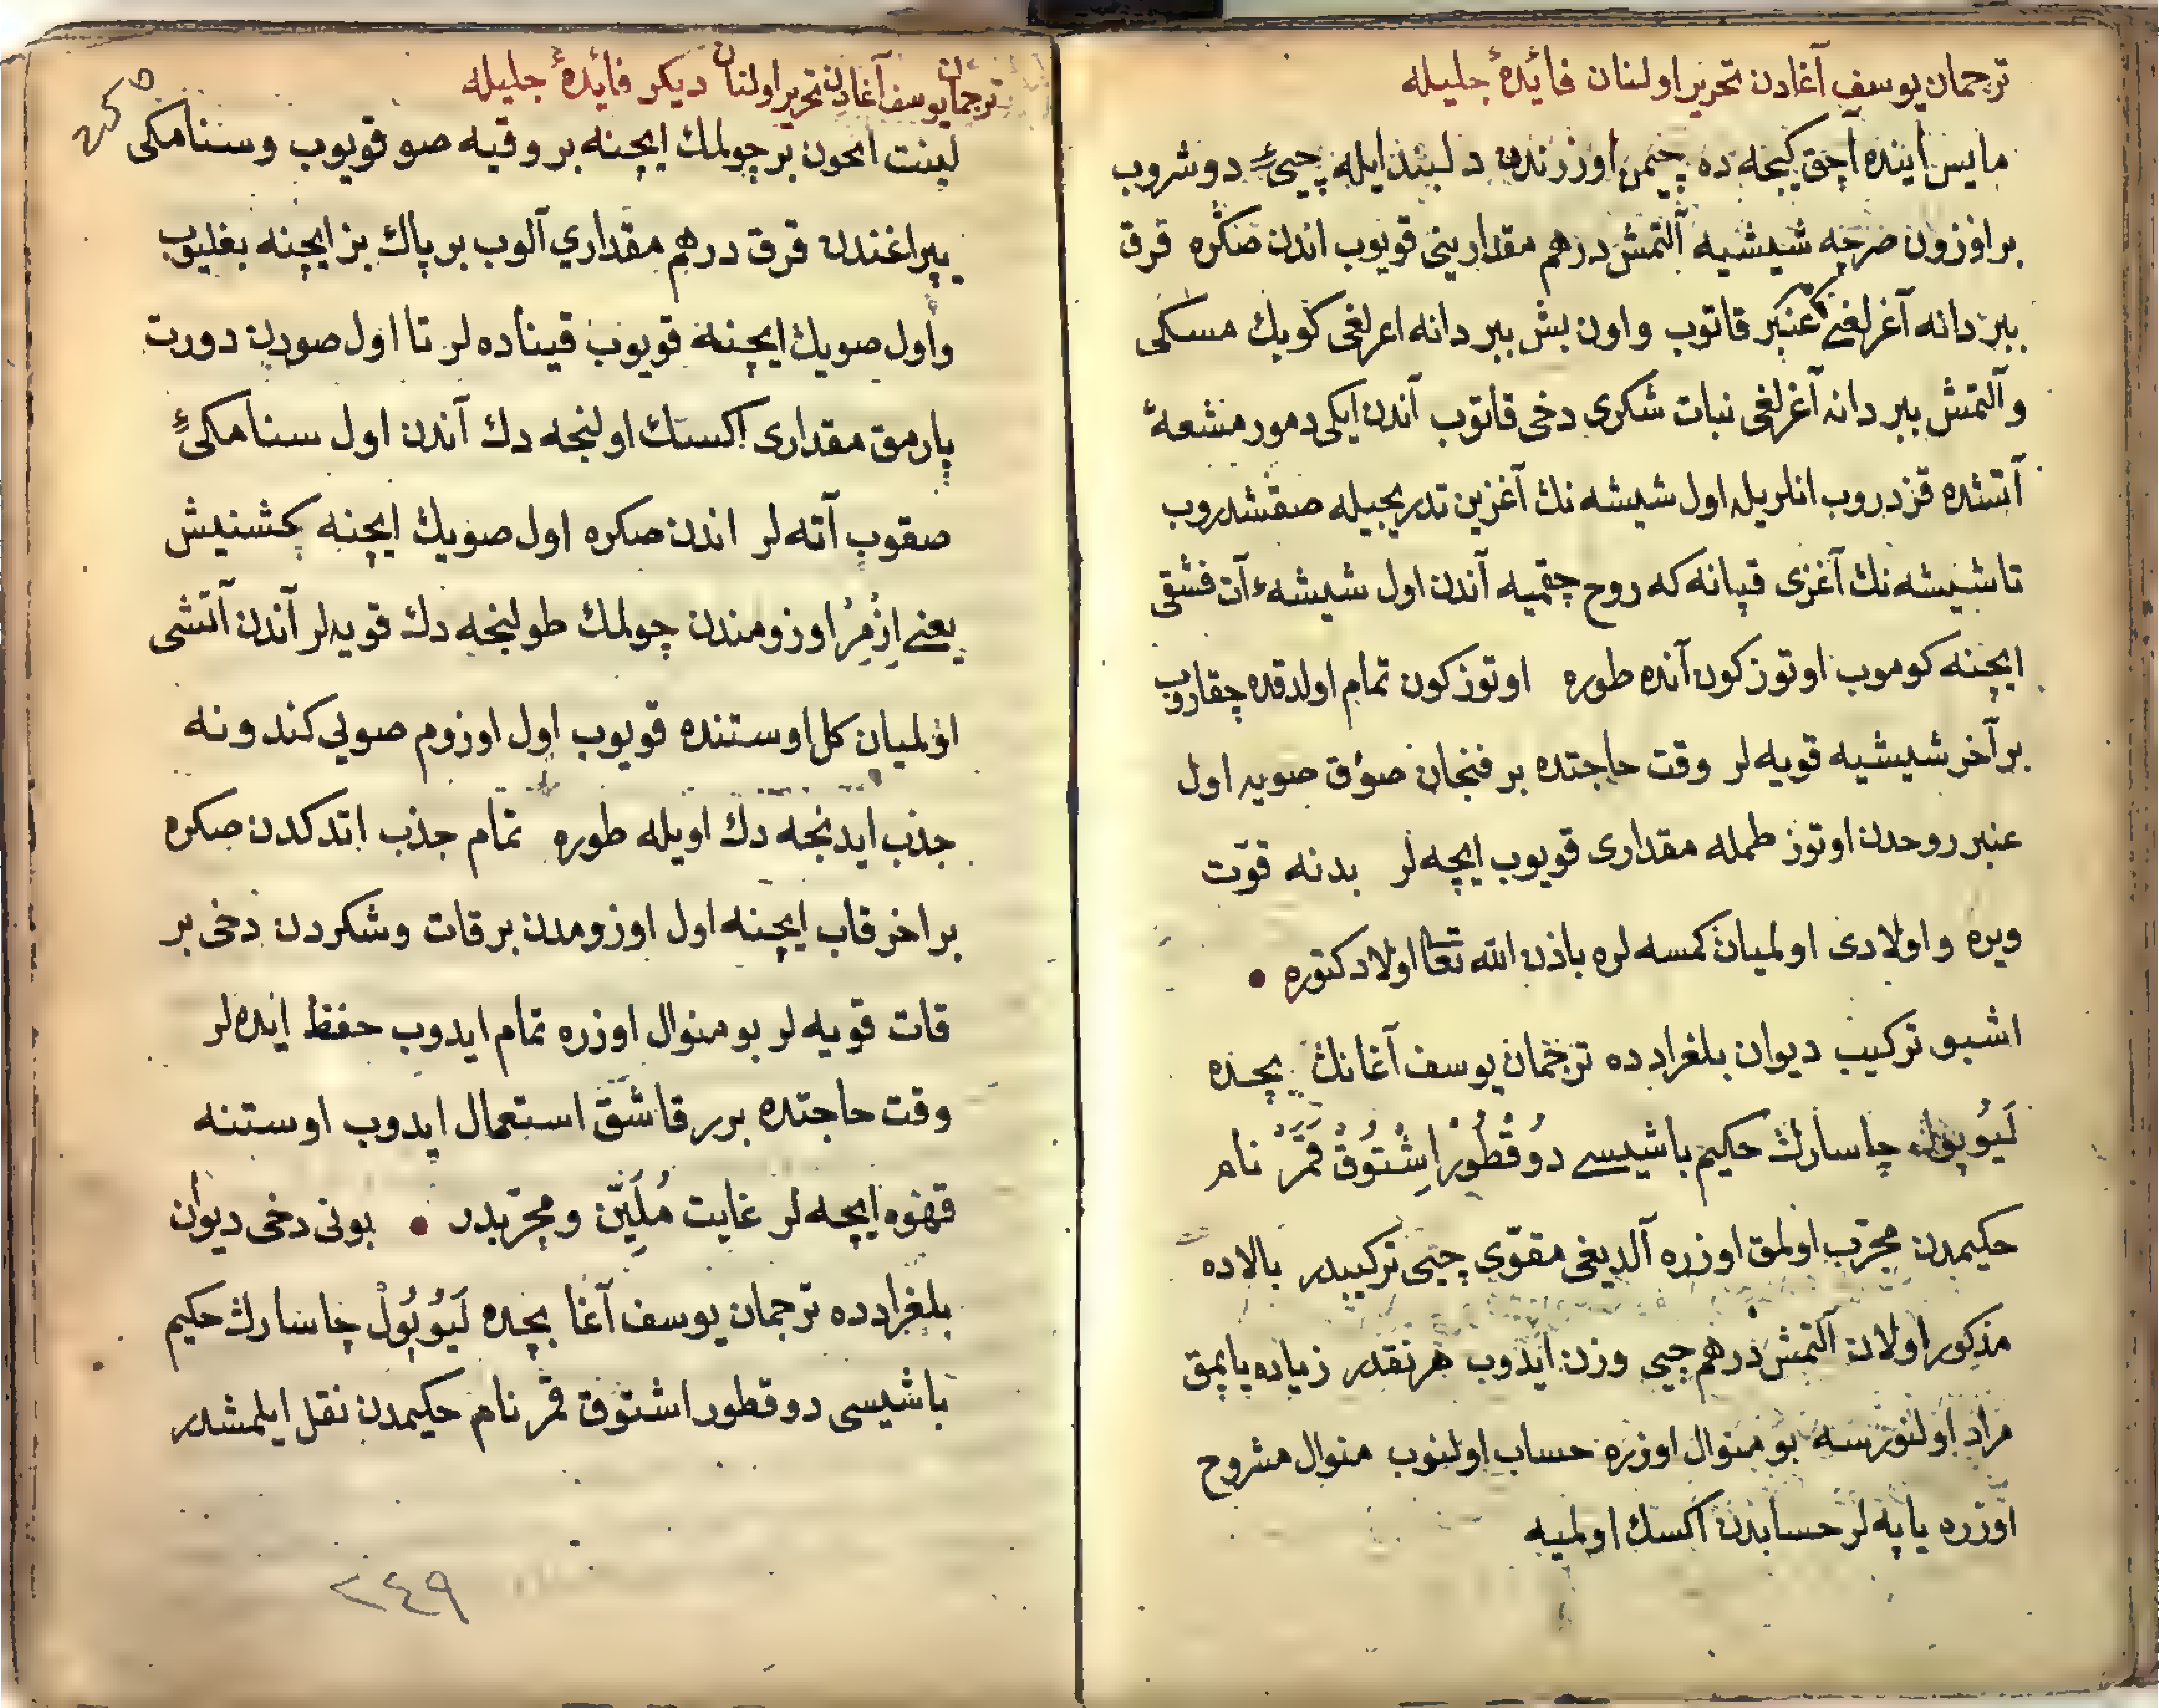 ترجمان يوسف آغادن تحرير اولنان فائدهٔ جليله
مايس آينده آچق كيجه ده چيمن اوزرندن دلبند ايله چيئ دوشروب
بر اوزون صرچه شيشيه آلتمش درهم مقدارينى قويوب اندن صڭره قرق
ببر دانه آغرلغى عنبر قاتوب واون بش ببر دانه اغرلغى كوبك مسكى
وآلتمش ببر دانه آغرلغى نبات شكرى دخى قاتوب آندن ايكى دمور مشعهٔ
آتشده قزدروب انلريله اول شيشه نك آغزين تدريجيله صقشدروب
تا شيشه نك آغزى قپانه كه روح چقميه آندن اول شيشهٔ آت فشقى
ايچنه كوموب اوتوز كون آنده طوره اوتوز كون تمام اولدقده چقاروب
بر آخر شيشيه قويه لر وقت حاجتده بر فنجان صؤق صويه اول
عنبر روحدن اوتوز طمله مقدارى قويوب ايچه لر بدنه قوّت
ويره واولادى اولميان كمسه لره باذن الله تعا اولاد كتوره •
اشبو تركيب ديوان بلغرادده ترجمان يوسف آغانك بجده
لَيُوپول چاسارك حكيم باشيسى دُوقْطُورْ اِشْتُوقْ قَمَّرْ نام
حكيمدن مجرّب اولمق اوزره آلديغى مقوّى چيى تركيبيدر بالاده
مذكور اولان آلتمش درهم چيى وزن ايدوب هر نقدر زياده يايمق
مراد اولنورسه بو منوال اوزره حساب اولنوب منوال مشروح
اوزره ياپه لر حسابدن اكسك اولميه
ترجمان يوسف آغادن تحرير اولنان ديكر فائدهٔ جليله
لينت ايچون بر چولمك ايچنه بر وقيه صو قويوب وسنامكى
يپراغندن قرق درهم مقداري آلوب بر پاك بز ايچنه بغليوب
واول صويك ايچنه قويوب قيناده لر تا اول صودن دورت
پارمق مقدارى اكسك اولنجه دك آندن اول سنامكئ
صقوب آته لر اندن صكره اول صويك ايچنه كشنيش
يعنى اِزْمِرْ اوزومندن چولمك طولنجه دك قويه لر آندن آتشى
اولميان كل اوستنده قويوب اول اوزوم صويى كندونه
جذب ايدنجه دك اويله طوره تمام جذب اتدكدن صكره
بر اخر قاب ايچنه اول اوزومدن بر قات وشكردن دخى بر
قات قويه لر بو منوال اوزره تمام ايدوب حفظ ايده لر
وقت حاجتده برر قاشق استعمال ايدوب اوستنه
قهوه ايچه لر غايت مُلَيِّن ومجرّبدر • بونى دخى ديوان
بلغرادده ترجمان يوسف آغا بجده لَيُوپُولْ چاسارك حكيم
باشيسى دوقطور اشتوق قمر نام حكيمدن نقل ايلمشدر
٢٤٩